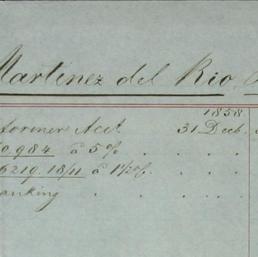 Martinez del Rio
1858
former Acct 31 Decb.
0,984 à 5% . . . .
6219.18/11 à 1½% . . .
anking . . . .